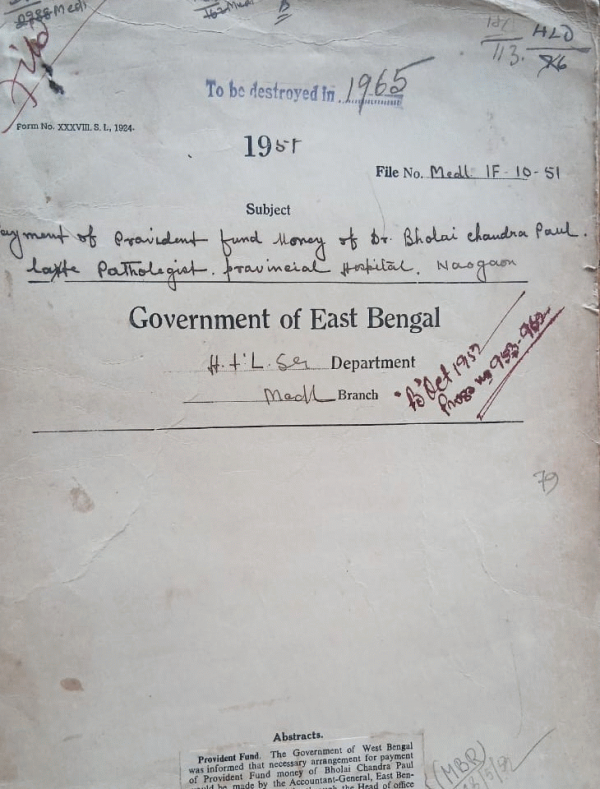 2988 Medl
162 Medl
B
File
181
113.
HLD
76
To be destroyed in 1965
Form No. XXXVIII. S. I., 1924.
1951
File No. Medl 1F-10-51
Subject
ayment of Provident fund Money of Dr. Bholai Chandra Paul.
late Pathologist. provincial Hospital. Naogaon
Government of East Bengal
H. & L. Department
Medl Branch
"B" Oct 1952
Progs nos 953-962
79
Abstracts.
Provident Fund. The Government of West Bengal
was informed that necessary arrangement for payment
of Provident Fund money of Bholai Chandra Paul
be made by the Accountant-General, East Ben-
the Head of office
(MBR)